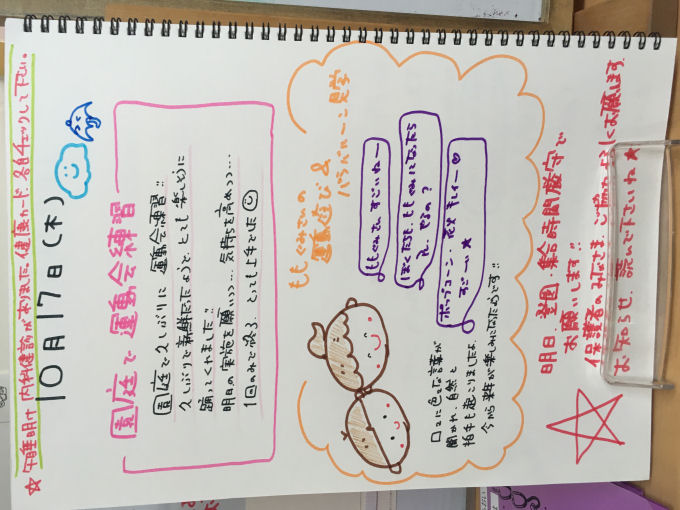 ☆午睡明け 内科健診がありました。健康カード、各自チェックして下さい。
10月17日(木)
園庭で 運動会練習
園庭で久しぶりに 運動会練習!!
久しぶりで新鮮だったようで、とても楽しそうに
踊ってくれました!!
明日の実施を願いつつ…気持ちを高めつつ…
1回のみで終了。とっても上手でした
ももぐみさんの
運動遊び &
パラバルーン見学
ももぐみさん すごいねー
ぼくたちも、ももぐみになったら
アレ、やるの?
ポップコーン・花火 キレイー♡
すごーい★
口々に色々な言葉が
聞かれ、自然と
拍手も起こりましたよ。
今から来年が楽しみになったようです!!
明日、登園・集合時間厳守で
お願いします!!
保護者のみなさま、ご協力よろしくお願いします。
お知らせ、読んで下さいね★